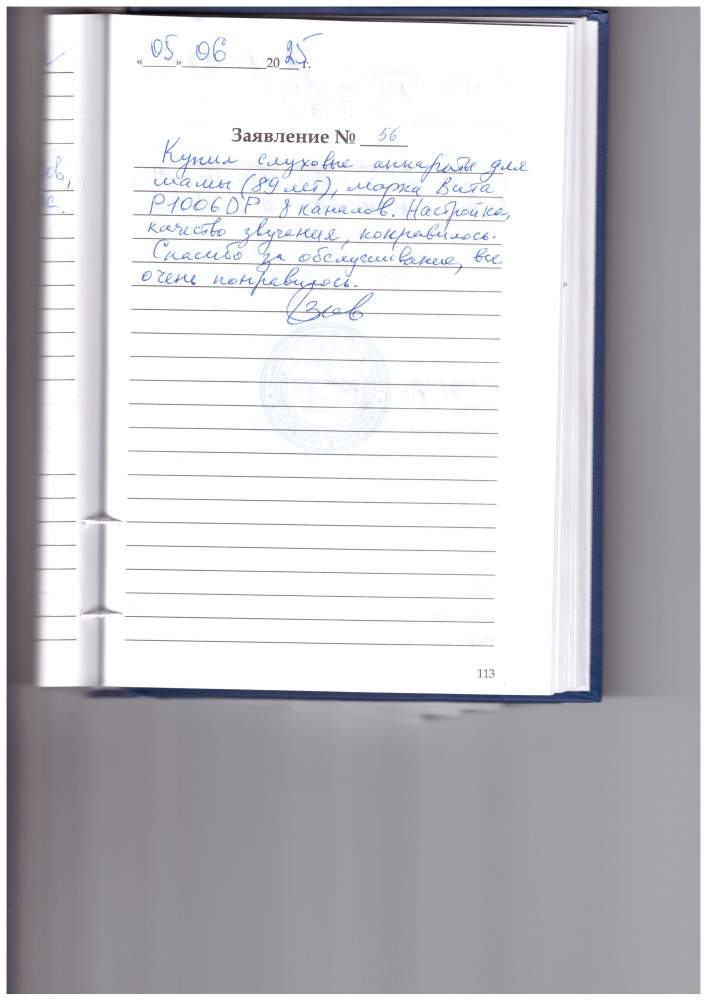 «05» 06 2025г.
Заявление № 56
Купил слуховые аппараты для
мамы (89 лет), марка Вита
P1006DP 8 каналов. Настройка,
качество звучания, понравилось.
Спасибо за обслуживание, все
очень понравилось.
113